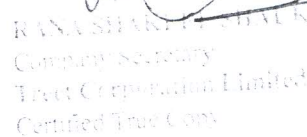 RANA SHAKEEL
Company Secretary
Treet Corporation Limited
Certified True Copy